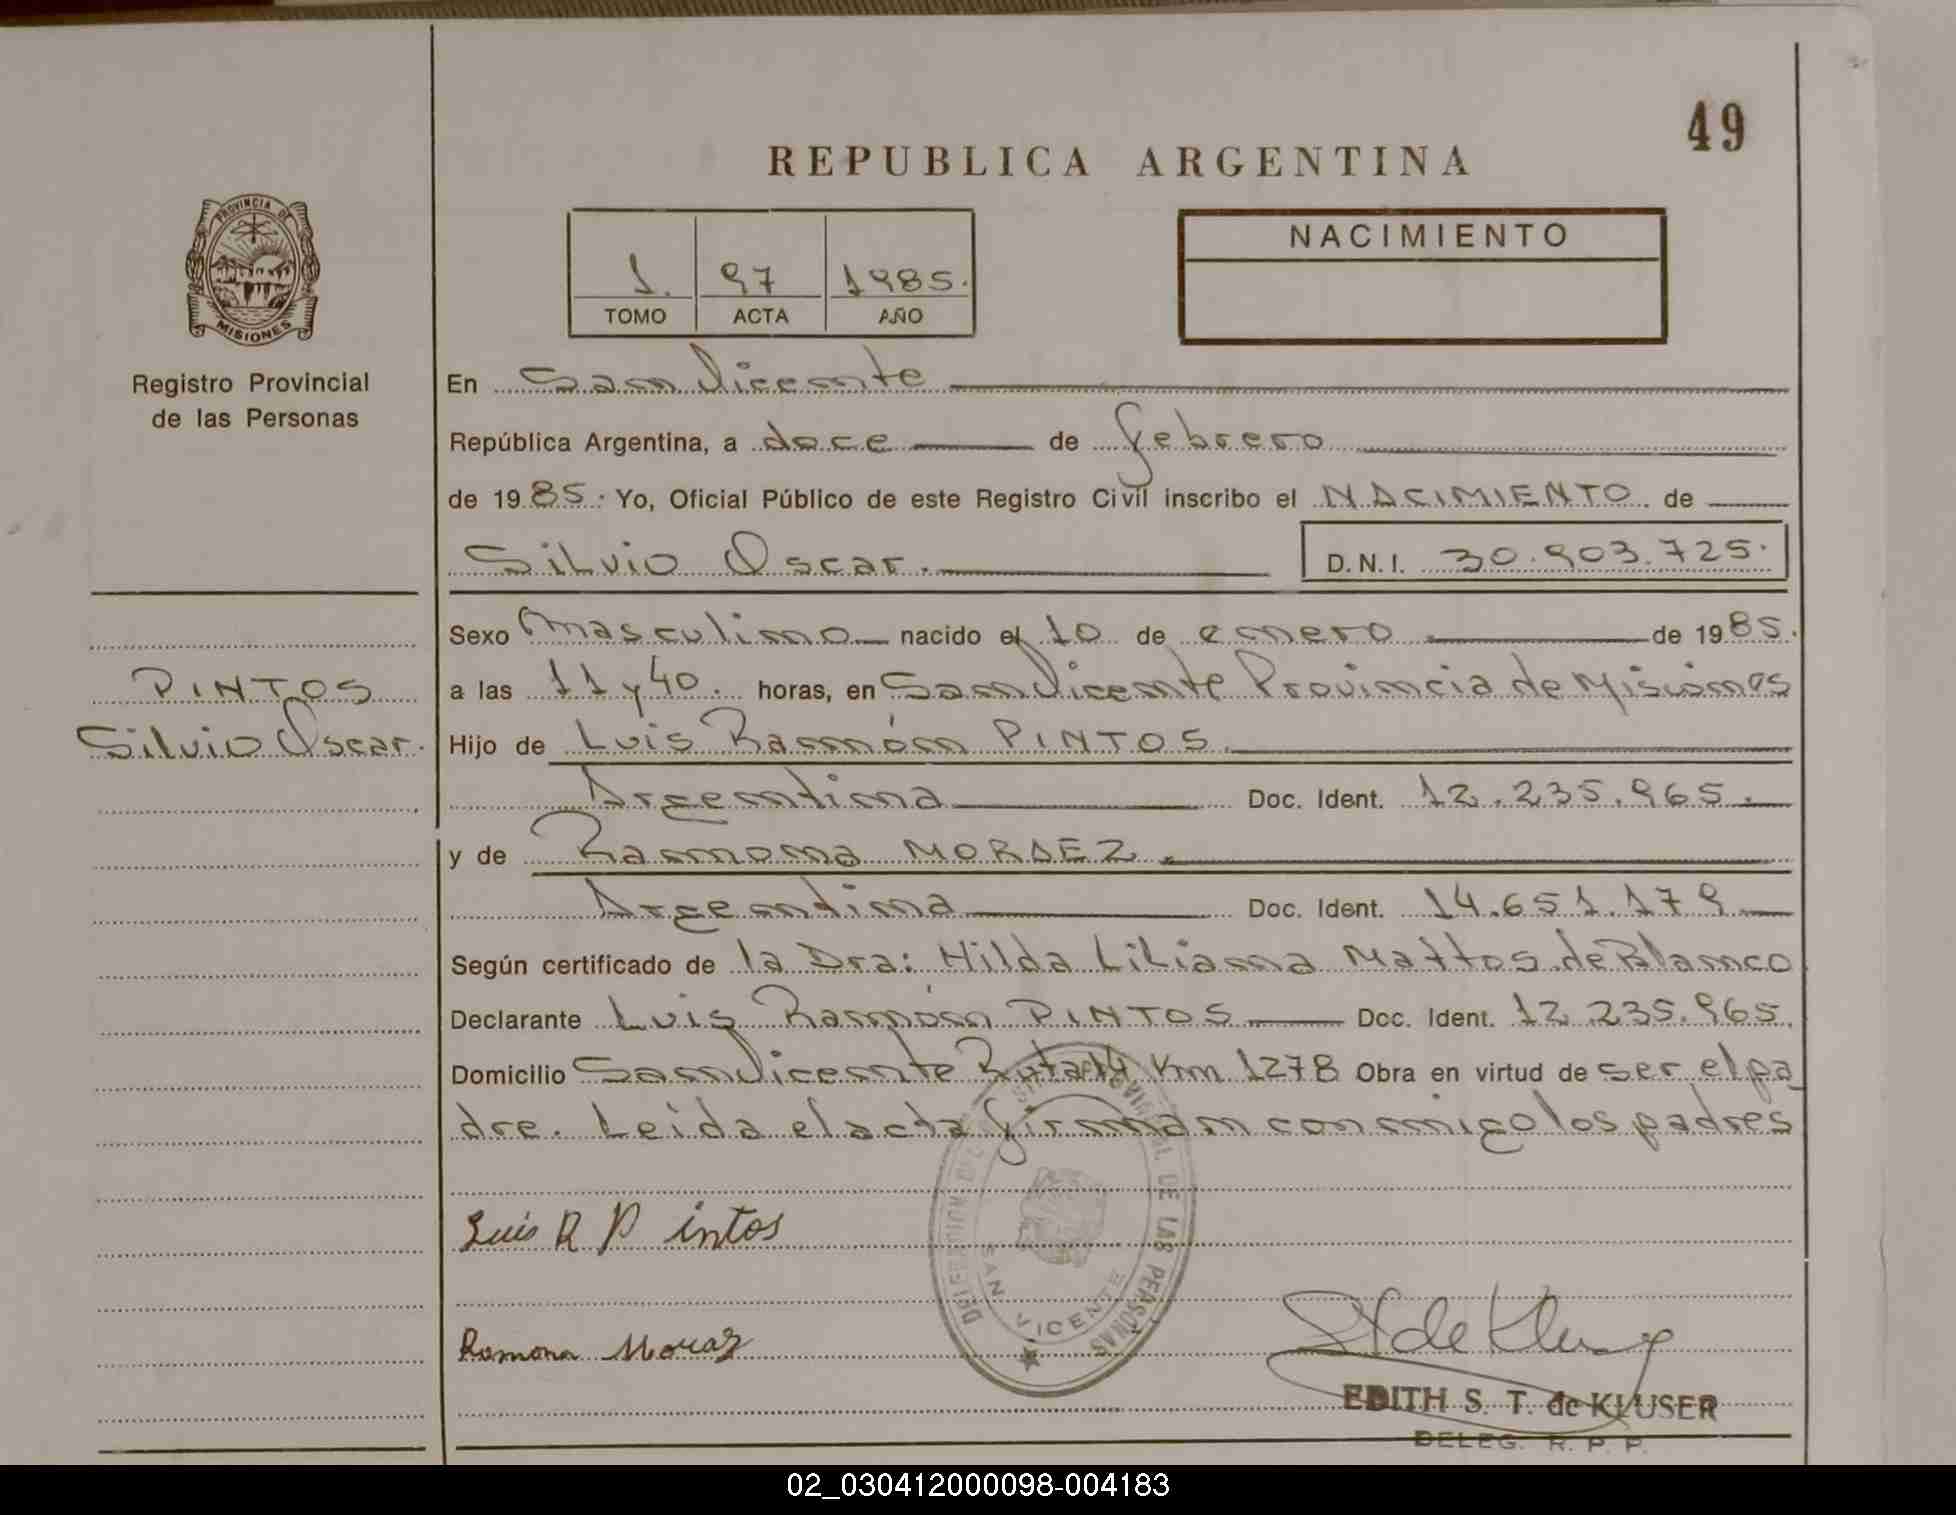 49
REPUBLICA ARGENTINA
PROVINCIA DE
MISIONES
Registro Provincial
de las Personas
1. 97 1985.
TOMO ACTA AÑO
NACIMIENTO
En San Vicente
República Argentina, a doce de febrero
de 1985. Yo, Oficial Público de este Registro Civil inscribo el NACIMIENTO de
Silvio Oscar.
D.N.I. 30.903.725.
Sexo Masculino nacido el 10 de enero de 1985.
PINTOS
Silvio Oscar.
a las 11 y 40. horas, en San Vicente Provincia de Misiones
Hijo de Luis Ramón PINTOS.
Argentina Doc. Ident. 12.235.965.
y de Ramona MORAEZ.
Argentina Doc. Ident. 14.651.179
Según certificado de la Dra: Hilda Liliana Mattos de Blanco
Declarante Luis Ramón PINTOS Doc. Ident. 12.235.965.
Domicilio San Vicente Ruta 14 Km 1278 Obra en virtud de ser el pa
dre. Leida el acta firman conmigo los padres
Luis R Pintos
Ramona
DE LAS PERSONAS
SAN VICENTE
EDITH S. T. de KLUSER
DELEG. R. P. P.
02_030412000098-004183